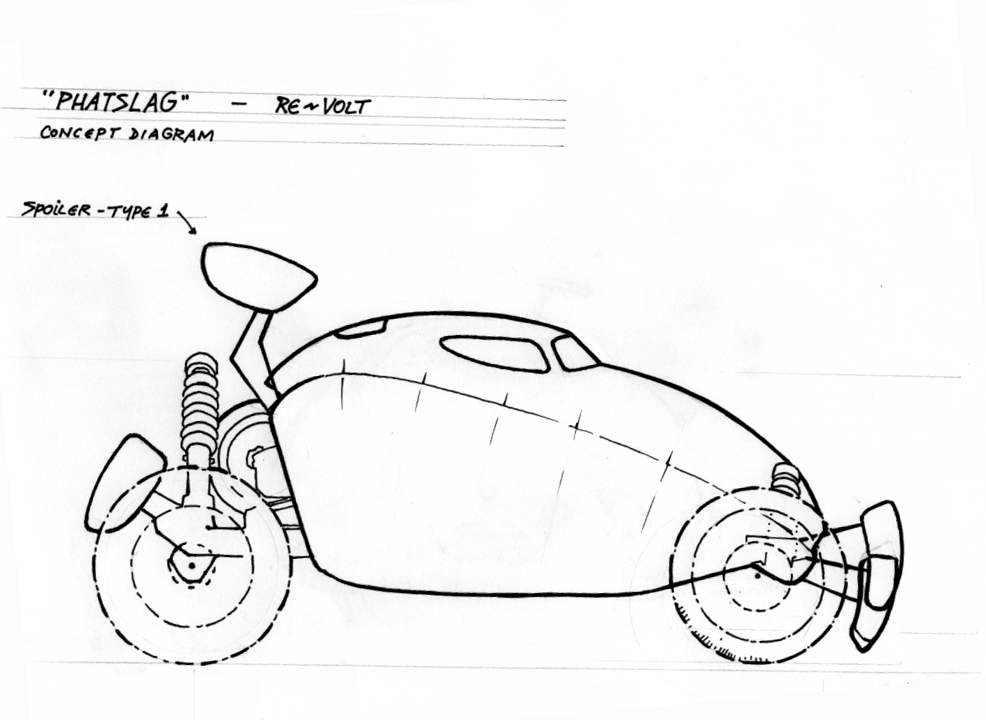 "PHATSLAG" - RE~VOLT
CONCEPT DIAGRAM
SPOILER - TYPE 1